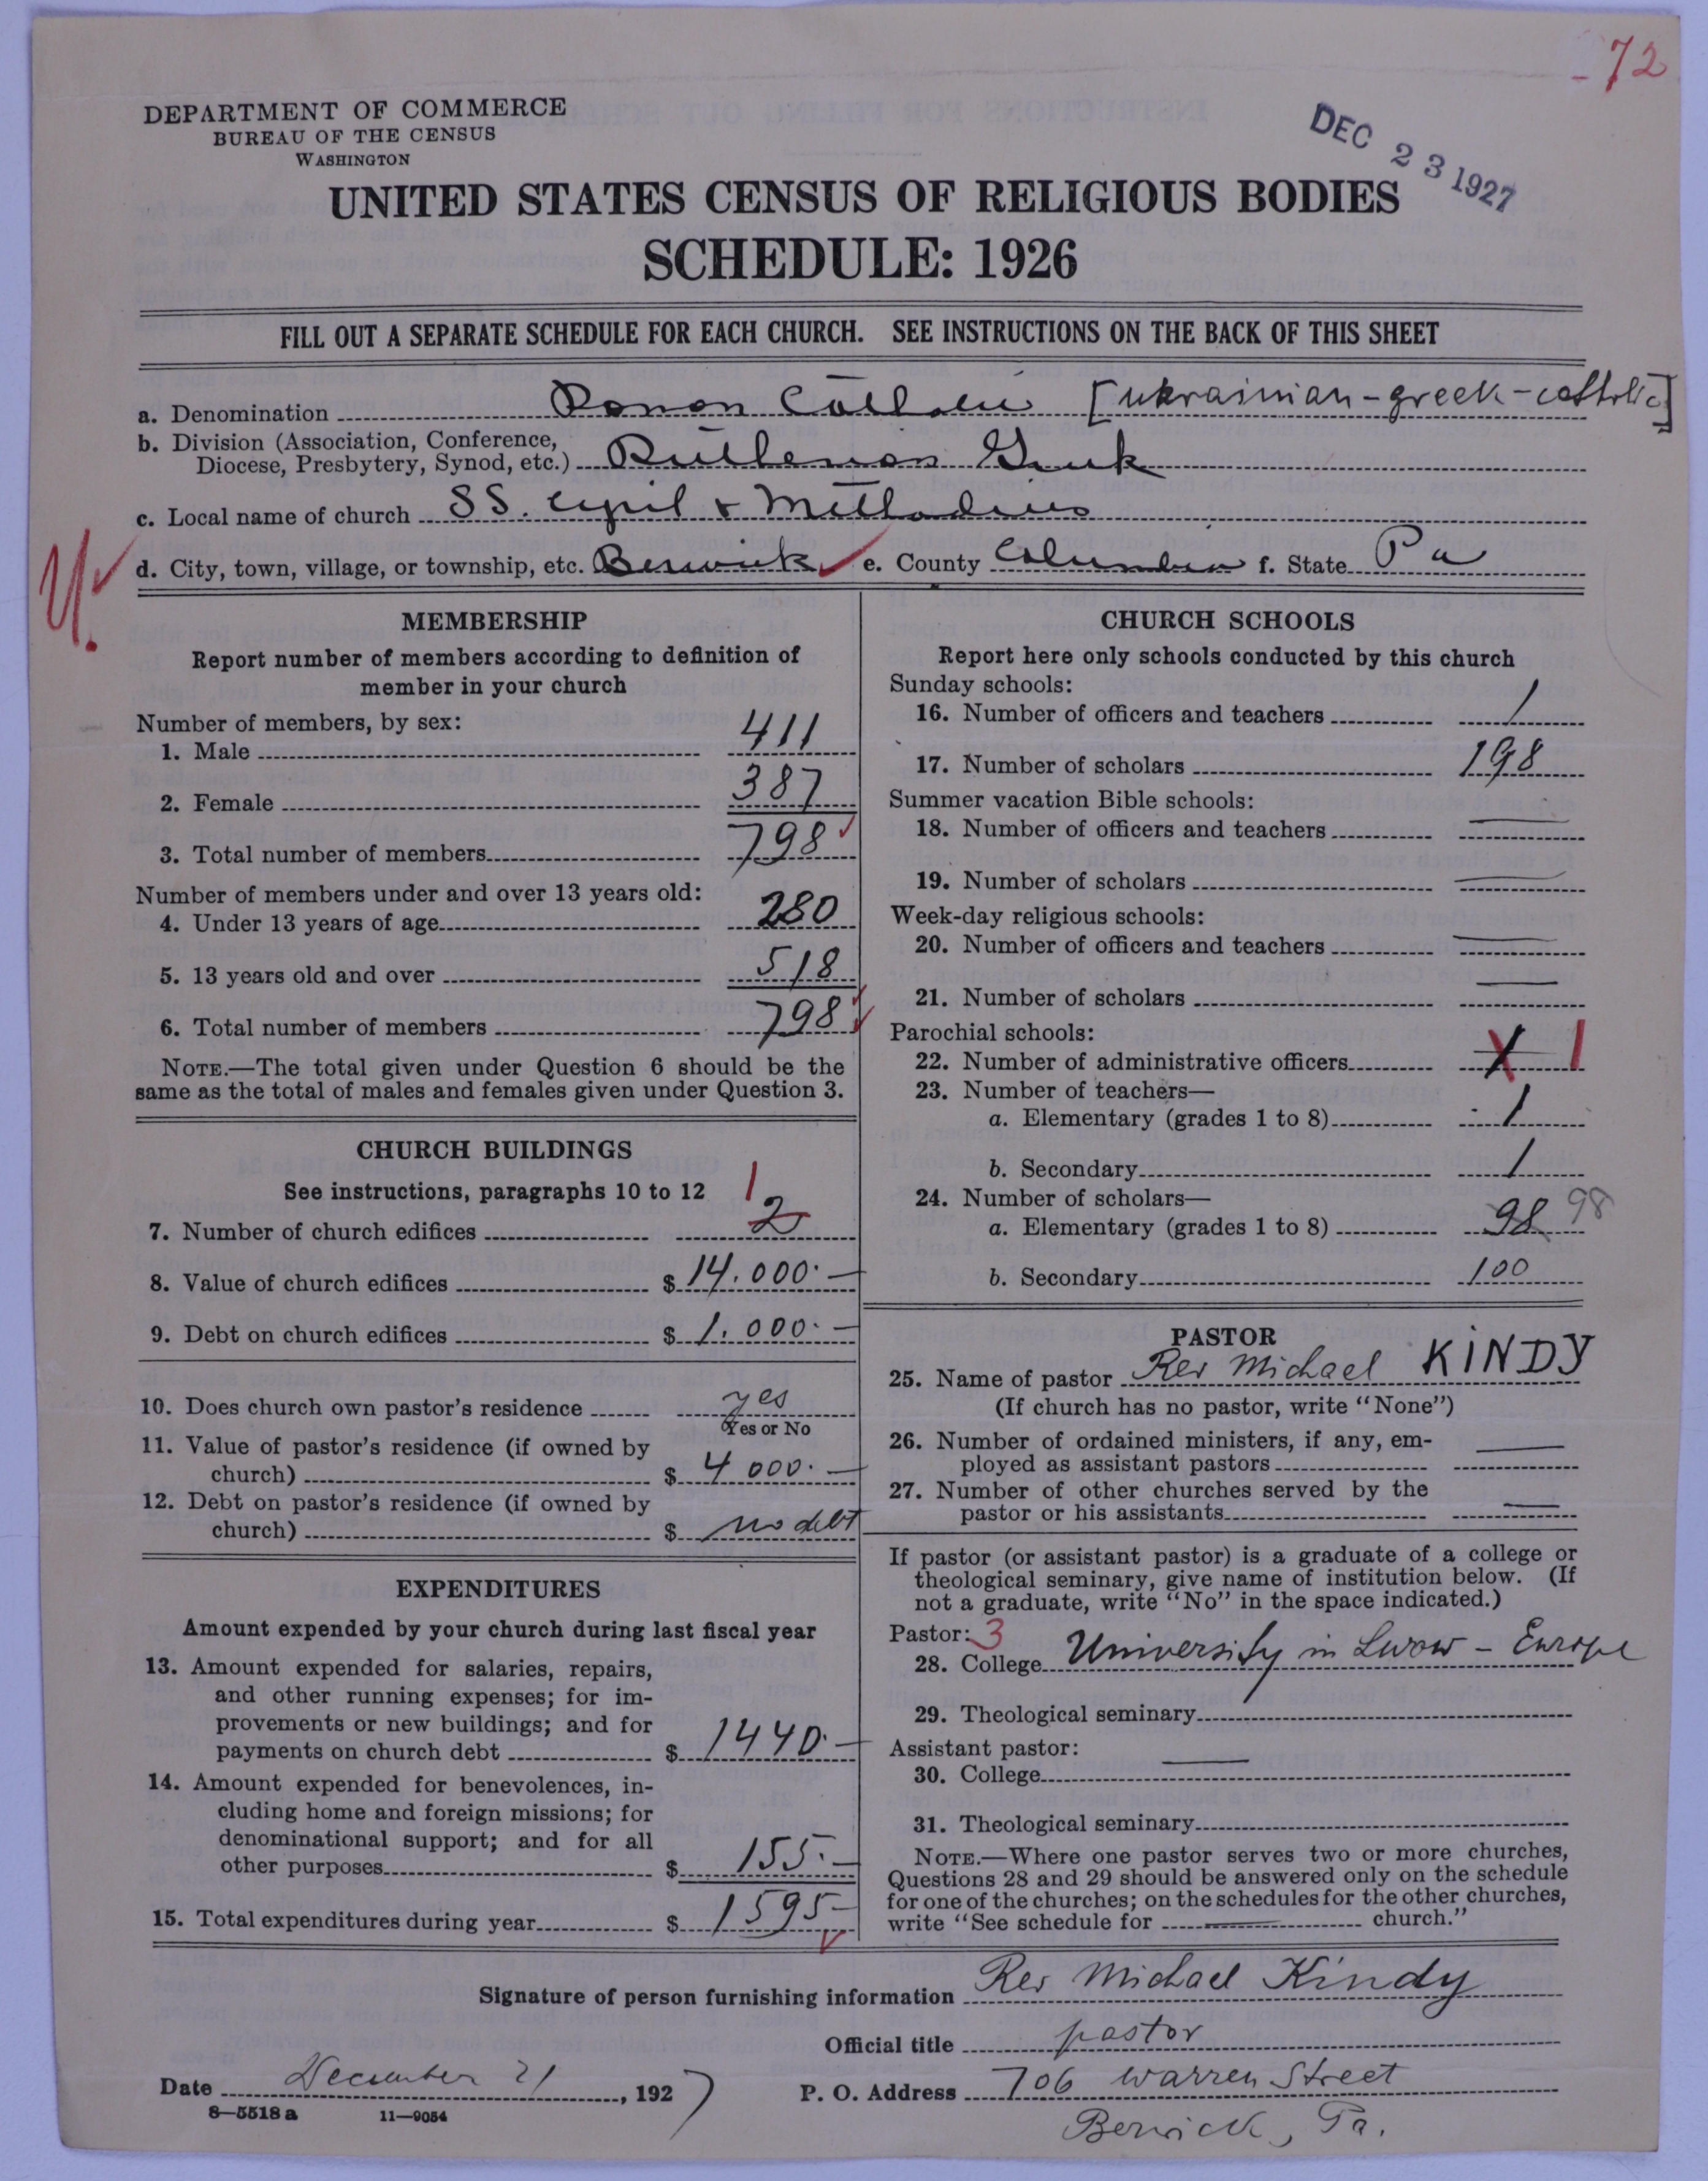 -72
DEPARTMENT OF COMMERCE
BUREAU OF THE CENSUS
WASHINGTON
DEC 23 1927
UNITED STATES CENSUS OF RELIGIOUS BODIES
SCHEDULE: 1926
FILL OUT A SEPARATE SCHEDULE FOR EACH CHURCH. SEE INSTRUCTIONS ON THE BACK OF THIS SHEET
a. Denomination Roman Catholic [Ukrainian-greek-catholic]
b. Division (Association, Conference,
Diocese, Presbytery, Synod, etc.) Ruthenian Greek
c. Local name of church SS. Cyril & Methodius
d. City, town, village, or township, etc. Berwick e. County Columbia f. State Pa
MEMBERSHIP
Report number of members according to definition of
member in your church
Number of members, by sex:
1. Male 411
2. Female 387
3. Total number of members 798
Number of members under and over 13 years old:
4. Under 13 years of age 280
5. 13 years old and over 518
6. Total number of members 798
NOTE.—The total given under Question 6 should be the
same as the total of males and females given under Question 3.
CHURCH BUILDINGS
See instructions, paragraphs 10 to 12
1
7. Number of church edifices 2
8. Value of church edifices $ 14.000.—
9. Debt on church edifices $ 1.000.—
10. Does church own pastor's residence yes
Yes or No
11. Value of pastor's residence (if owned by
church) $ 4 000.—
12. Debt on pastor's residence (if owned by
church) $ no debt
EXPENDITURES
Amount expended by your church during last fiscal year
13. Amount expended for salaries, repairs,
and other running expenses; for im-
provements or new buildings; and for
payments on church debt $ 1440.—
14. Amount expended for benevolences, in-
cluding home and foreign missions; for
denominational support; and for all
other purposes $ 155.—
15. Total expenditures during year $ 1595—
CHURCH SCHOOLS
Report here only schools conducted by this church
Sunday schools:
16. Number of officers and teachers 1
17. Number of scholars 198
Summer vacation Bible schools:
18. Number of officers and teachers —
19. Number of scholars —
Week-day religious schools:
20. Number of officers and teachers —
21. Number of scholars —
Parochial schools:
22. Number of administrative officers 1 1
23. Number of teachers—
a. Elementary (grades 1 to 8) 1
b. Secondary 1
24. Number of scholars—
a. Elementary (grades 1 to 8) 98 98
b. Secondary 100
PASTOR
25. Name of pastor Rev Michael KINDY
(If church has no pastor, write "None")
26. Number of ordained ministers, if any, em-
ployed as assistant pastors —
27. Number of other churches served by the
pastor or his assistants —
If pastor (or assistant pastor) is a graduate of a college or
theological seminary, give name of institution below. (If
not a graduate, write "No" in the space indicated.)
Pastor: 3
28. College University in Lwow - Europe
29. Theological seminary
Assistant pastor: —
30. College
31. Theological seminary
NOTE.—Where one pastor serves two or more churches,
Questions 28 and 29 should be answered only on the schedule
for one of the churches; on the schedules for the other churches,
write "See schedule for — church."
Signature of person furnishing information Rev Michael Kindy
Official title pastor
Date December 21, 1927 P. O. Address 706 Warren Street
8—5518 a 11—9054
Berwick, Pa.